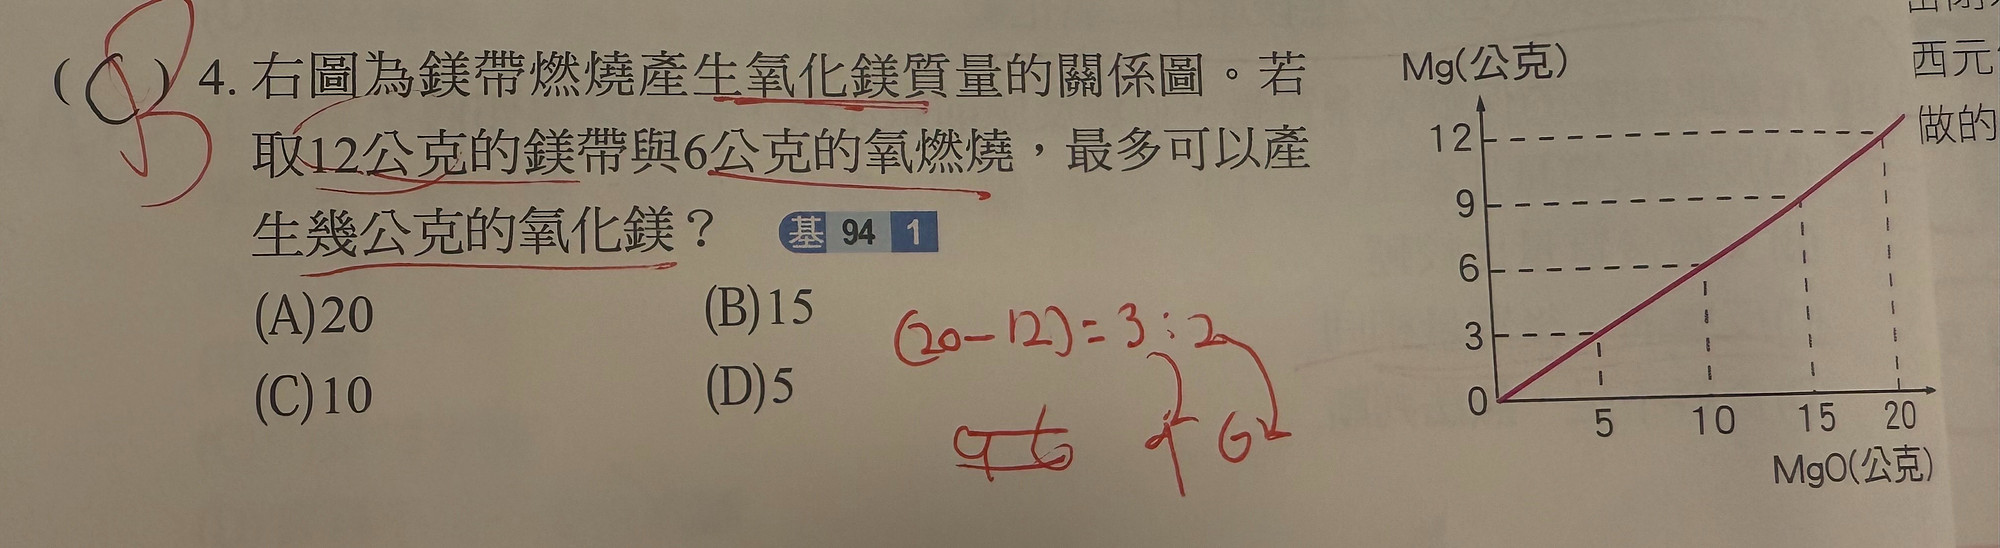 (C) B 4. 右圖為鎂帶燃燒產生氧化鎂質量的關係圖。若
取12公克的鎂帶與6公克的氧燃燒,最多可以產
生幾公克的氧化鎂? 基 94 1
(A)20 (B)15
(C)10 (D)5
(20-12)=3:2
9 6
Mg(公克)
12
9
6
3
0
5 10 15 20
MgO(公克)
西元
做的